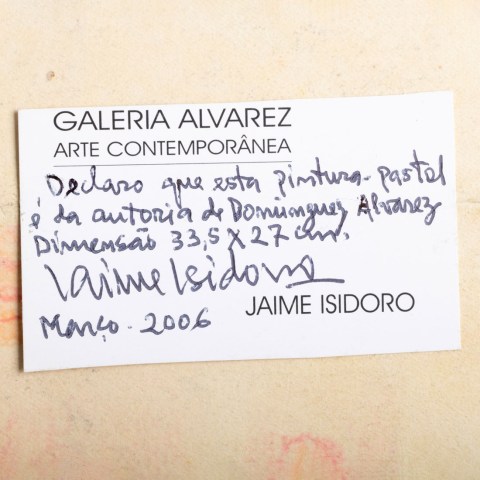 GALERIA ALVAREZ
ARTE CONTEMPORÂNEA
Declaro que esta pintura-pastel
é da autoria de Dominguez Alvarez
Dimensão 33,5 X 27 cm.
Jaime Isidoro
JAIME ISIDORO
Março-2006